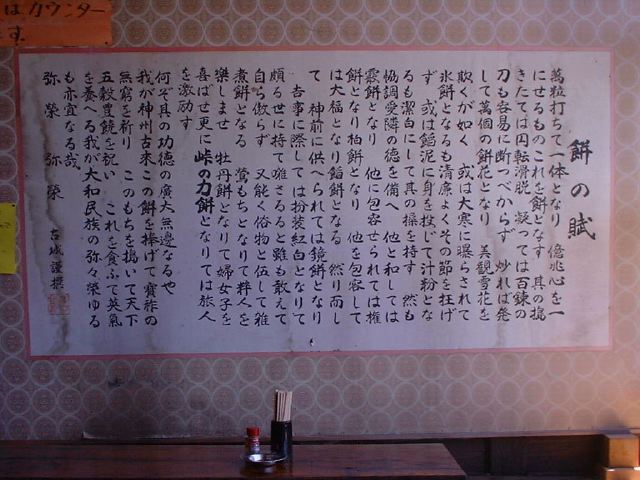 はカウンター
です
餅の賦
萬粒打ちて一体となり 億兆心を一
にせるものこれを餅となす 其の搗
きたては円転滑脱 凝っては百錬の
刀も容易に断つべからず 炒れば発
して萬個の餅花となり 美観雪花を
欺くが如く 或は大寒に曝らされて
氷餅となるも清廉よくその節を抂げ
ず 或は餡泥に身を投じて汁粉とな
るも潔白にして其の操を持す 然も
協調愛隣の徳を備へ 他と和しては
霰餅となり 他に包容せられては椎
餅となり柏餅となり 他を包容して
は大福となり餡餅となる 然り而し
て 神前に供へられては鏡餅となり
吉事に際しては扮装紅白となりて
頗る世に持て囃さるると雖も敢えて
自ら傲らず 又能く俗物と伍して雑
煮餅となる 鶯もちとなりて粋人を
樂しませ 牡丹餅となりて婦女子を
喜ばせ更に峠の力餅となりては旅人
を激励す
何ぞ其の功徳の廣大無邊なるや
我が神州古来この餅を捧げて寶祚の
無窮を祈り このもちを搗いて天下
五穀豊饒を祝い これを食ふて英氣
を養へる我が大和民族の弥々榮ゆる
も亦宜なる哉
弥榮 弥榮
古城謹撰